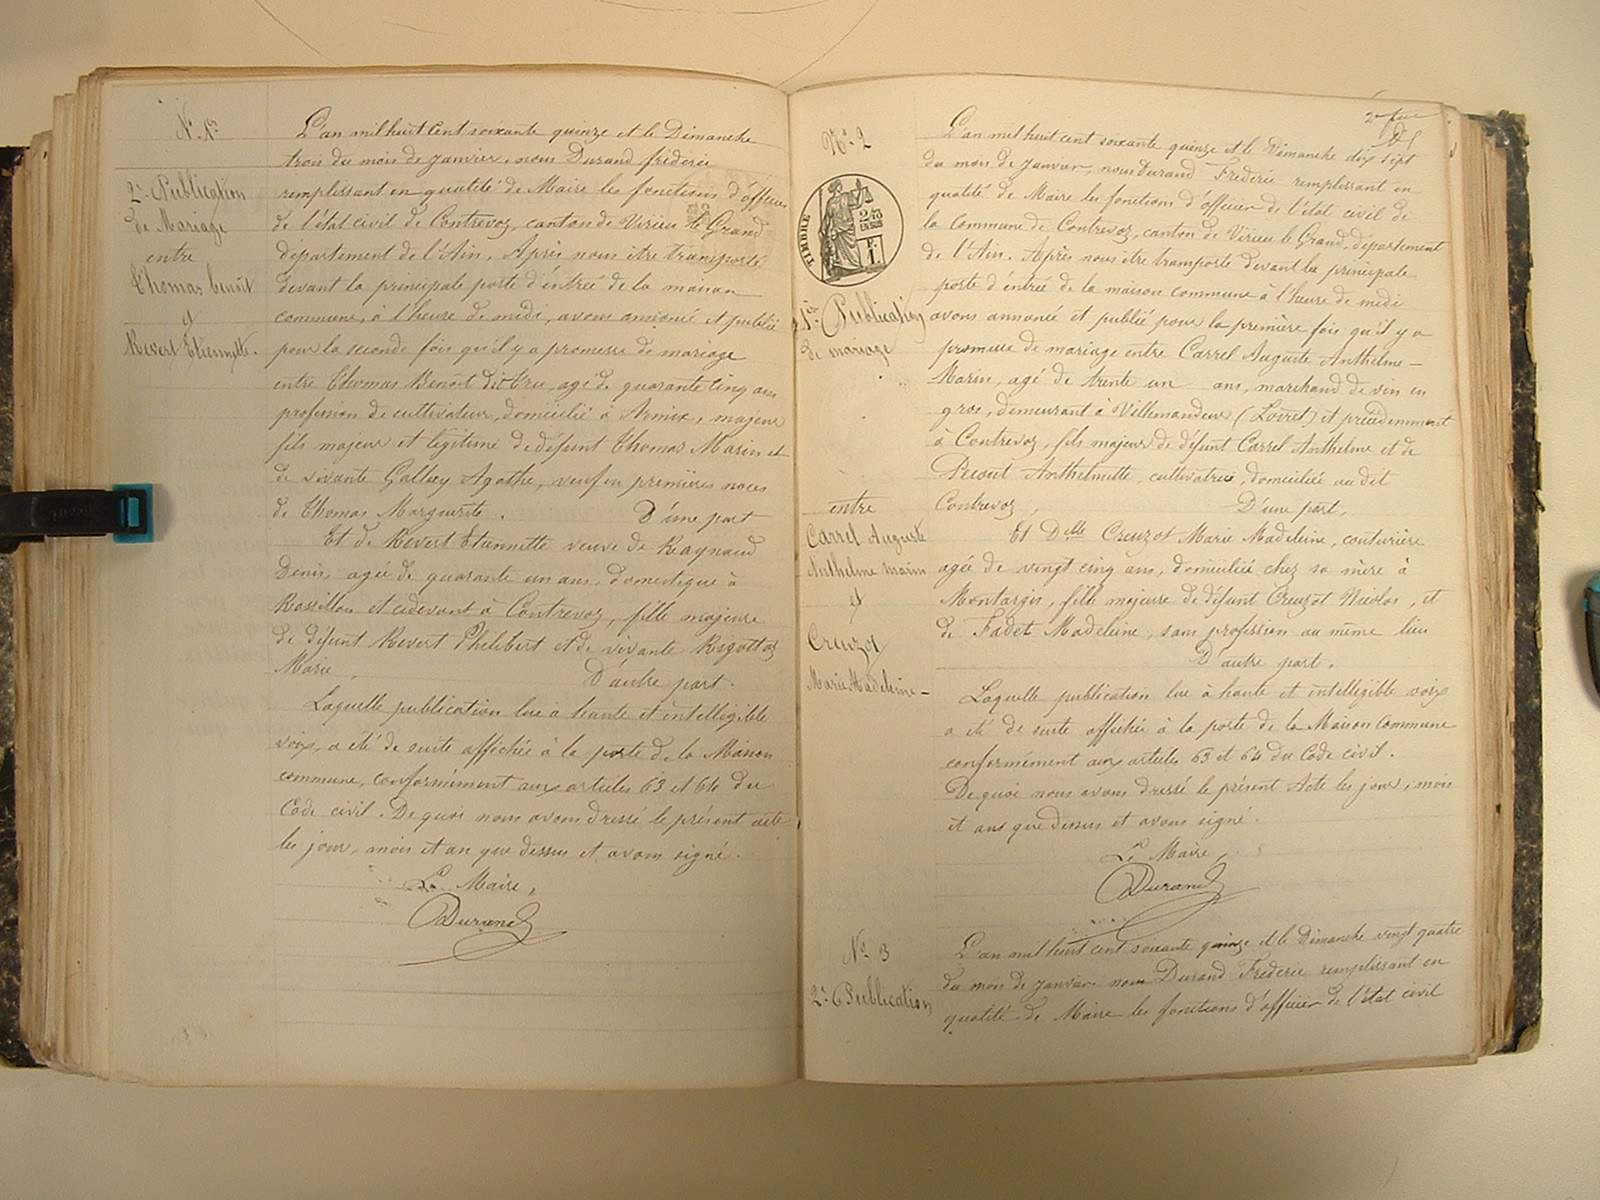 N° 1er
2e Publication
de Mariage
entre
Thomas benoit
et
Revert Etiennette.
L'an mil huit cent soixante quinze et le Dimanche
trois du mois de janvier, nous Durand fréderic
remplissant en qualité de Maire les fonctions d'officier
de l'état civil de Contrevoz, canton de Virieu le Grand
département de l'Ain, Après nous être transporté
devant la principale porte d'entrée de la maison
commune, à l'heure de midi, avons annoncé et publié
pour la seconde fois qu'il y a promesse de mariage
entre Thomas Benoit dit agé de quarante cinq ans
profession de cultivateur, domicilié à Armix, majeur
fils majeur et légitime de défunt Thomas Marin et
de vivante Gallay Agathe, veuf en premières noces
de Thomas Marguerite. D'une part
Et de Revert Etiennette veuve de Raynaud
Denis, agée de quarante un ans, domestique à
Rossillon et cidevant à Contrevoz, fille majeure
de défunt Revert Philibert et de vivante Rigottaz
Marie, D'autre part.
Laquelle publication lue à haute et intelligible
voix, a été de suite affichée à la porte de la Maison
commune, conformément aux articles 63 et 64 du
Code civil. De quoi nous avons dressé le présent acte
les jour, mois et an que dessus et avons signé.
Le Maire,
Durand
2e feu
N° 2
TIMBRE
2/10
EN SUS
F.
1
1ère Publication
de mariage
entre
Carrel Auguste
Anthelme marin
et
Creuzot
Marie Madeleine -
L'an mil huit cent soixante quinze et le Dimanche dix sept
du mois de janvier, nous Durand Fréderic remplissant en
qualité de Maire les fonctions d'officier de l'état civil de
la Commune de Contrevoz, canton de Virieu le Grand, département
de l'Ain. Après nous être transporté devant la principale
porte d'entrée de la maison commune à l'heure de midi
avons annoncé et publié pour la première fois qu'il y a
promesse de mariage entre Carrel Auguste Anthelme -
Marin, agé de trente un ans, marchand de vin en
gros, demeurant à Villemandeur (Loiret) et précédemment
à Contrevoz, fils majeur de défunt Carrel Anthelme et de
Pecout Anthelmette, cultivatrice, domiciliée au dit
Contrevoz, D'une part,
Et Delle Creuzot Marie Madeleine, couturière
agée de vingt cinq ans, domiciliée chez sa mère à
Montargis, fille majeure de défunt Creuzot Nicolas, et
de Fadet Madeleine, sans profession au même lieu
D'autre part.
Laquelle publication lue à haute et intelligible voix
a été de suite affichée à la porte de la Maison Commune
conformément aux articles 63 et 64 du Code civil.
De quoi nous avons dressé le présent Acte les jour, mois
et ans que dessus et avons signé.
Le Maire,
Durand
N° 3
2e Publication
L'an mil huit cent soixante quinze et le Dimanche vingt quatre
du mois de janvier nous Durand Fréderic remplissant en
qualité de Maire les fonctions d'officier de l'état civil